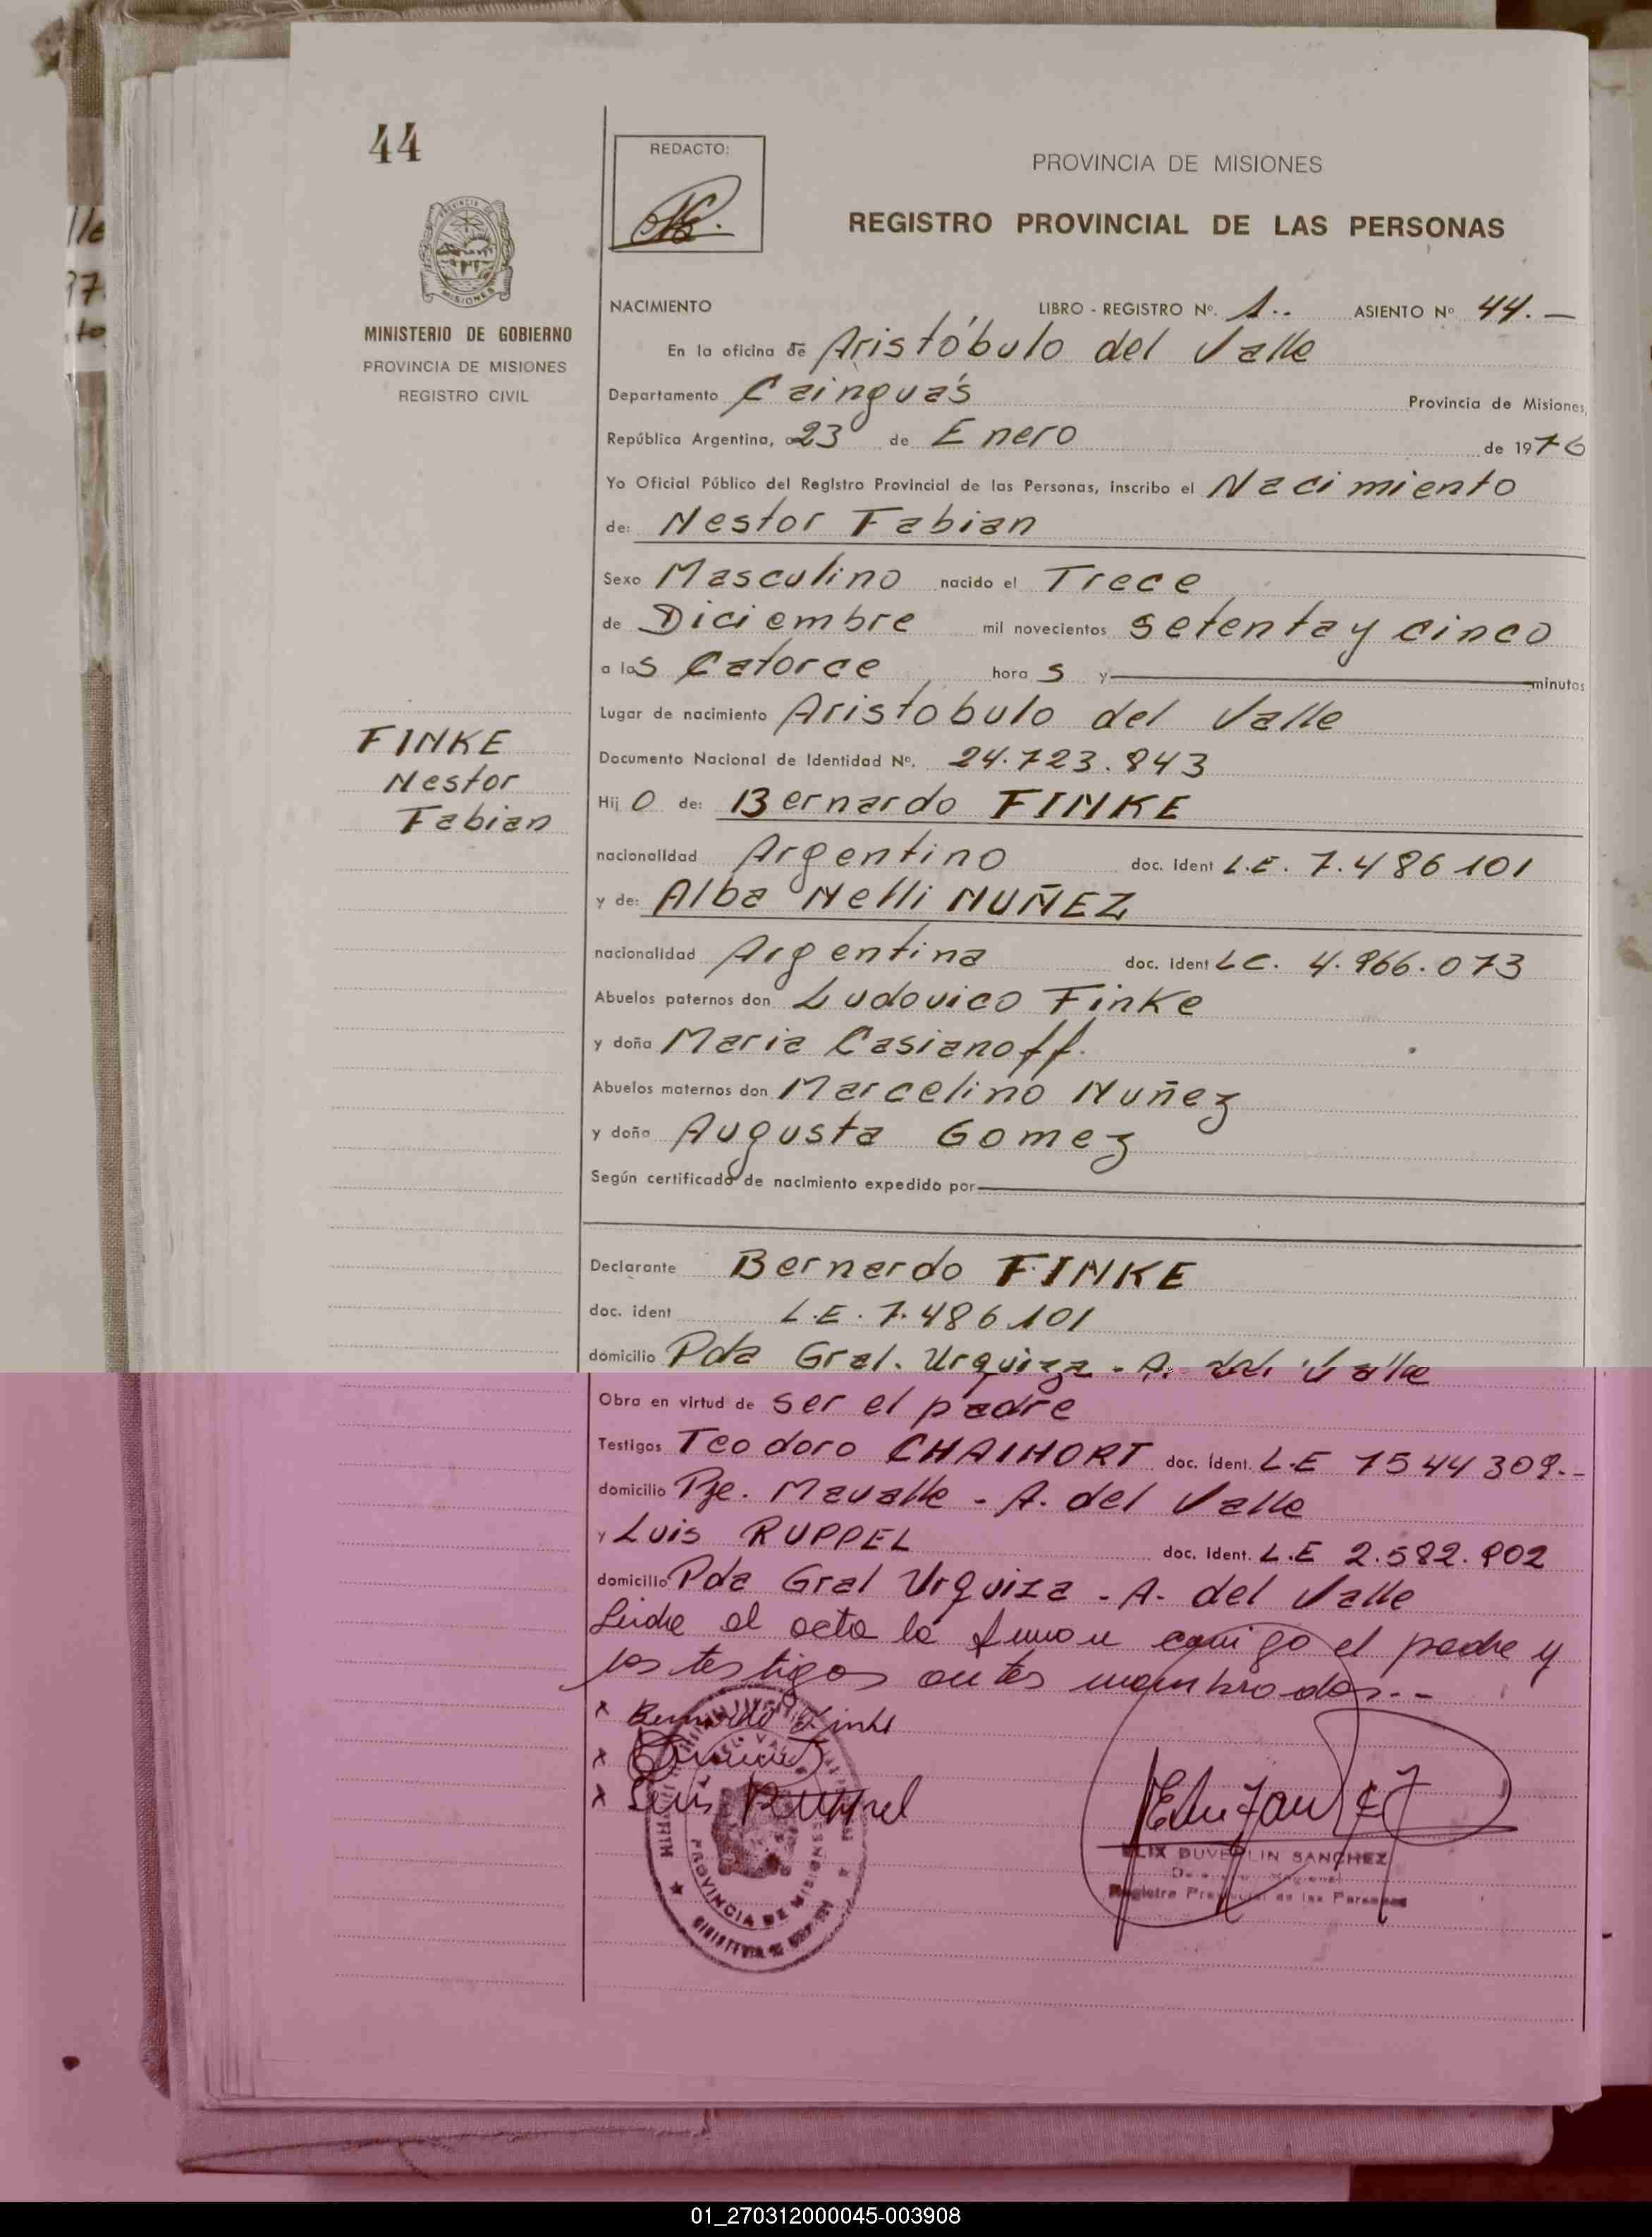 44
REDACTO:
PROVINCIA DE MISIONES
REGISTRO PROVINCIAL DE LAS PERSONAS
MINISTERIO DE GOBIERNO
PROVINCIA DE MISIONES
REGISTRO CIVIL
NACIMIENTO LIBRO - REGISTRO Nº. 1.. ASIENTO Nº 44.—
En la oficina de Aristóbulo del Valle
Departamento Cainguás Provincia de Misiones,
República Argentina, a 23 de Enero de 1976
Yo Oficial Público del Registro Provincial de las Personas, inscribo el Nacimiento
de: Nestor Fabian
Sexo Masculino nacido el Trece
de Diciembre mil novecientos setenta y cinco
a las Catorce horas y minutos
Lugar de nacimiento Aristobulo del Valle
FINKE
Nestor
Fabian
Documento Nacional de Identidad Nº. 24.723.843
Hijo de: Bernardo FINKE
nacionalidad Argentino doc. ident L.E. 7.486101
y de: Alba Nelli NUÑEZ
nacionalidad Argentina doc. ident LC. 4.966.073
Abuelos paternos don Ludovico Finke
y doña Maria Casianoff.
Abuelos maternos don Marcelino Nuñez
y doña Augusta Gomez
Según certificado de nacimiento expedido por
Declarante Bernardo FINKE
doc. ident L.E. 7.486101
domicilio Pda Gral. Urquiza - A. del Valle
Obra en virtud de ser el padre
Testigos Teodoro CHAIHORT doc. ident. L.E 7544309.--
domicilio Pje. Mavalle - A. del Valle
y Luis RUPPEL doc. ident. L.E 2.582.902
domicilio Pda Gral Urquiza - A. del Valle
Leida el acta la firman conmigo el padre y
los testigos antes nombrados.--
x Bernardo Finke
x
x Luis Ruppel
PROVINCIA DE MISIONES
FELIX DUVERLIN SANCHEZ
Registro Provincial de las Personas
01_270312000045-003908